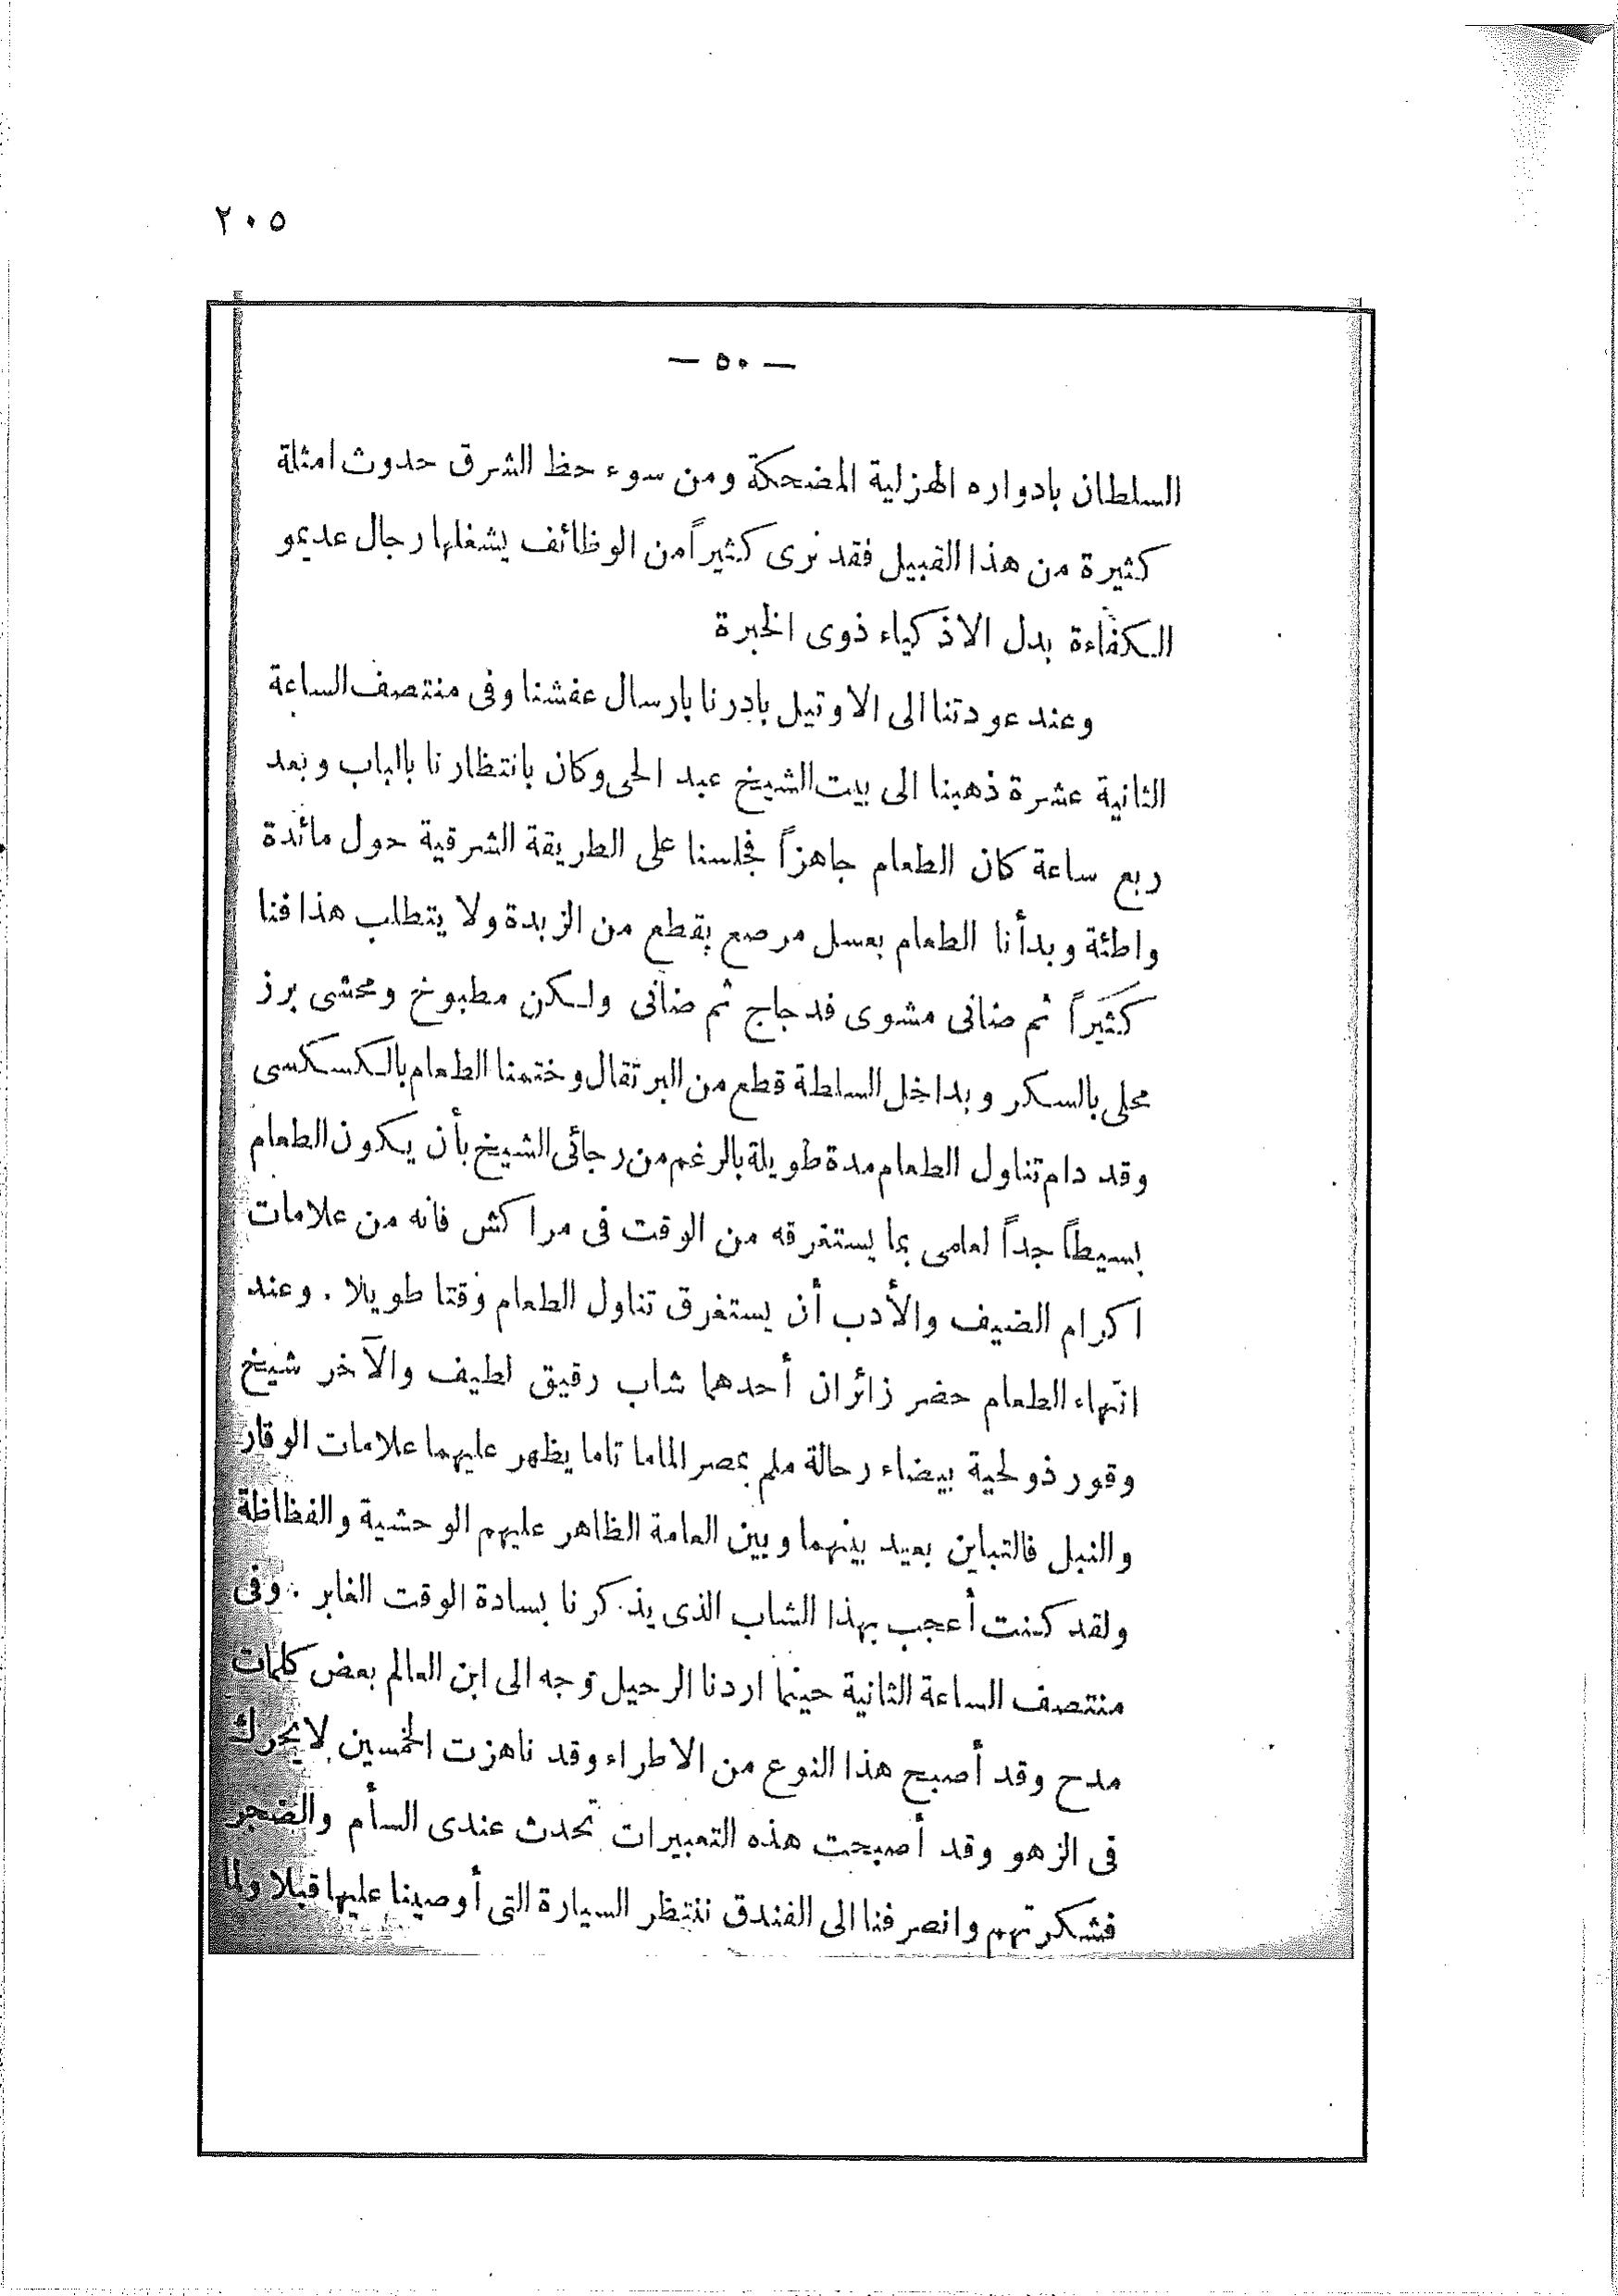 ٢٠٥
— ٥٠ —
السلطان بادواره الهزلية المضحكة ومن سوء حظ الشرق حدوث امثلة
كثيرة من هذا القبيل فقد نرى كثيراً من الوظائف يشغلها رجال عديمو
الكفاءة بدل الاذكياء ذوى الخبرة
وعند عودتنا الى الاوتيل بادرنا بارسال عفشنا وفى منتصف الساعة
الثانية عشرة ذهبنا الى بيت الشيخ عبد الحى وكان بانتظارنا بالباب وبعد
ربع ساعة كان الطعام جاهزاً فجلسنا على الطريقة الشرقية حول مائدة
واطئة وبدأنا الطعام بعسل مرصع بقطع من الزبدة ولا يتطلب هذا فنا
كثيراً ثم ضانى مشوى فدجاج ثم ضانى ولكن مطبوخ ومحشى برز
محلى بالسكر وبداخل السلطة قطع من البرتقال وختمنا الطعام بالكسكسى
وقد دام تناول الطعام مدة طويلة بالرغم من رجائى الشيخ بأن يكون الطعام
بسيطاً جداً لعامى بما يستغرقه من الوقت فى مراكش فانه من علامات
اكرام الضيف والأدب أن يستغرق تناول الطعام وقتا طويلا . وعند
انتهاء الطعام حضر زائران أحدهما شاب رقيق لطيف والآخر شيخ
وقور ذو لحية بيضاء رحالة ملم بمصر الماما تاما يظهر عليهما علامات الوقار
والنبل فالتباين بعيد بينهما وبين العامة الظاهر عليهم الوحشية والفظاظة
ولقد كنت أعجب بهذا الشاب الذى يذكرنا بسادة الوقت الغابر . وفى
منتصف الساعة الثانية حينما اردنا الرحيل توجه الى ابن العالم بعض كلمات
مدح وقد أصبح هذا النوع من الاطراء وقد ناهزت الخمسين لا يحرك
فى الزهو وقد أصبحت هذه التعبيرات تحدث عندى السأم والضجر
فشكرتهم وانصرفنا الى الفندق ننتظر السيارة التى أوصينا عليها قبلا ولما